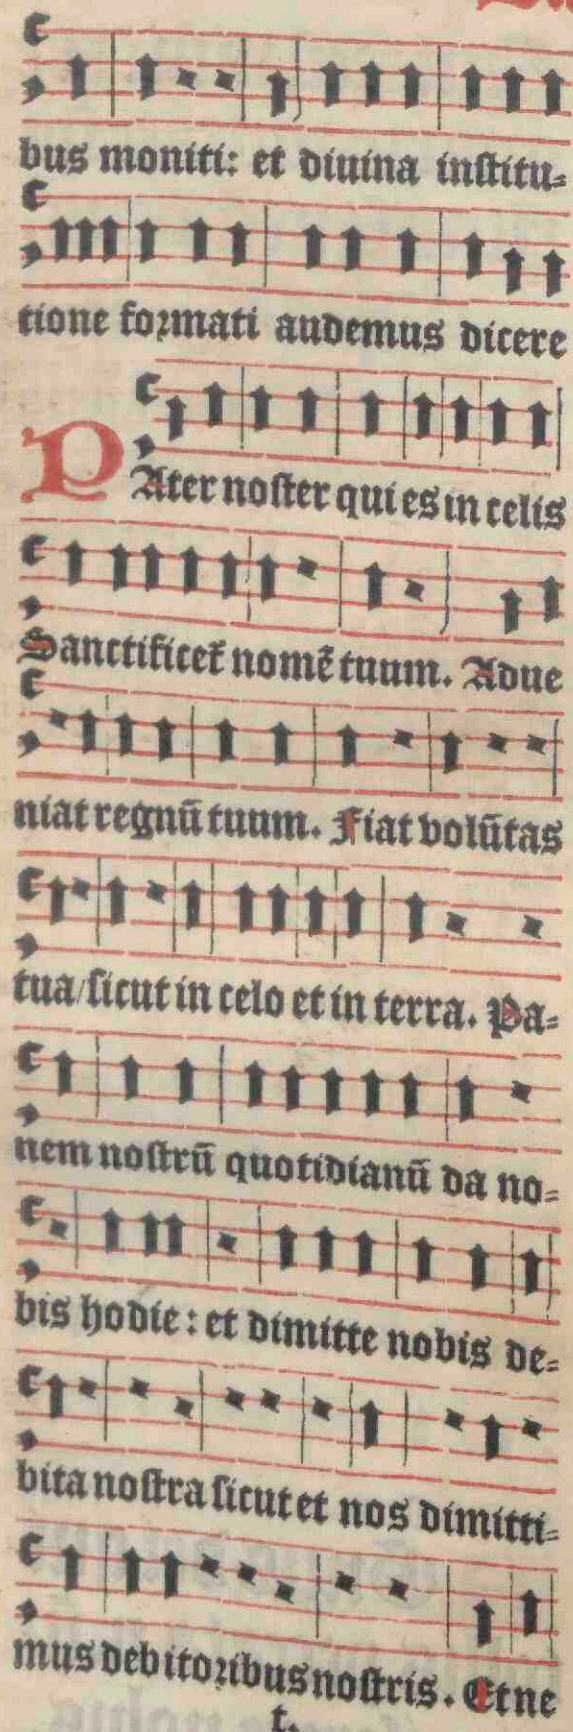 bus moniti: et diuina institu⸗
tione formati audemus dicere
PAter noster qui es in celis
Sanctificet᷑ nomē tuum. Adue
niat regnū tuum. Fiat volūtas
tua/sicut in celo et in terra. Pa⸗
nem nostrū quotidianū da no⸗
bis hodie: et dimitte nobis de⸗
bita nostra sicut et nos dimitti⸗
mus debitoribus nostris. Et ne
t.